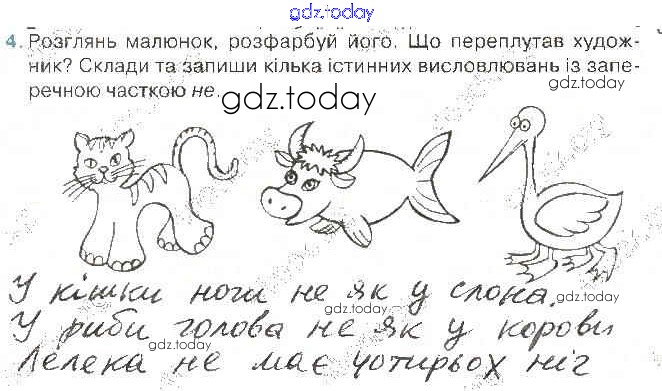 gdz.today
4. Розглянь малюнок, розфарбуй його. Що переплутав худож-
ник? Склади та запиши кілька істинних висловлювань із запе-
речною часткою не.
gdz.today
gdz.today
gdz.today
У кішки ноги не як у слона.
gdz.today
У риби голова не як у корови
gdz.today
Лелека не має чотирьох ніг
gdz.today